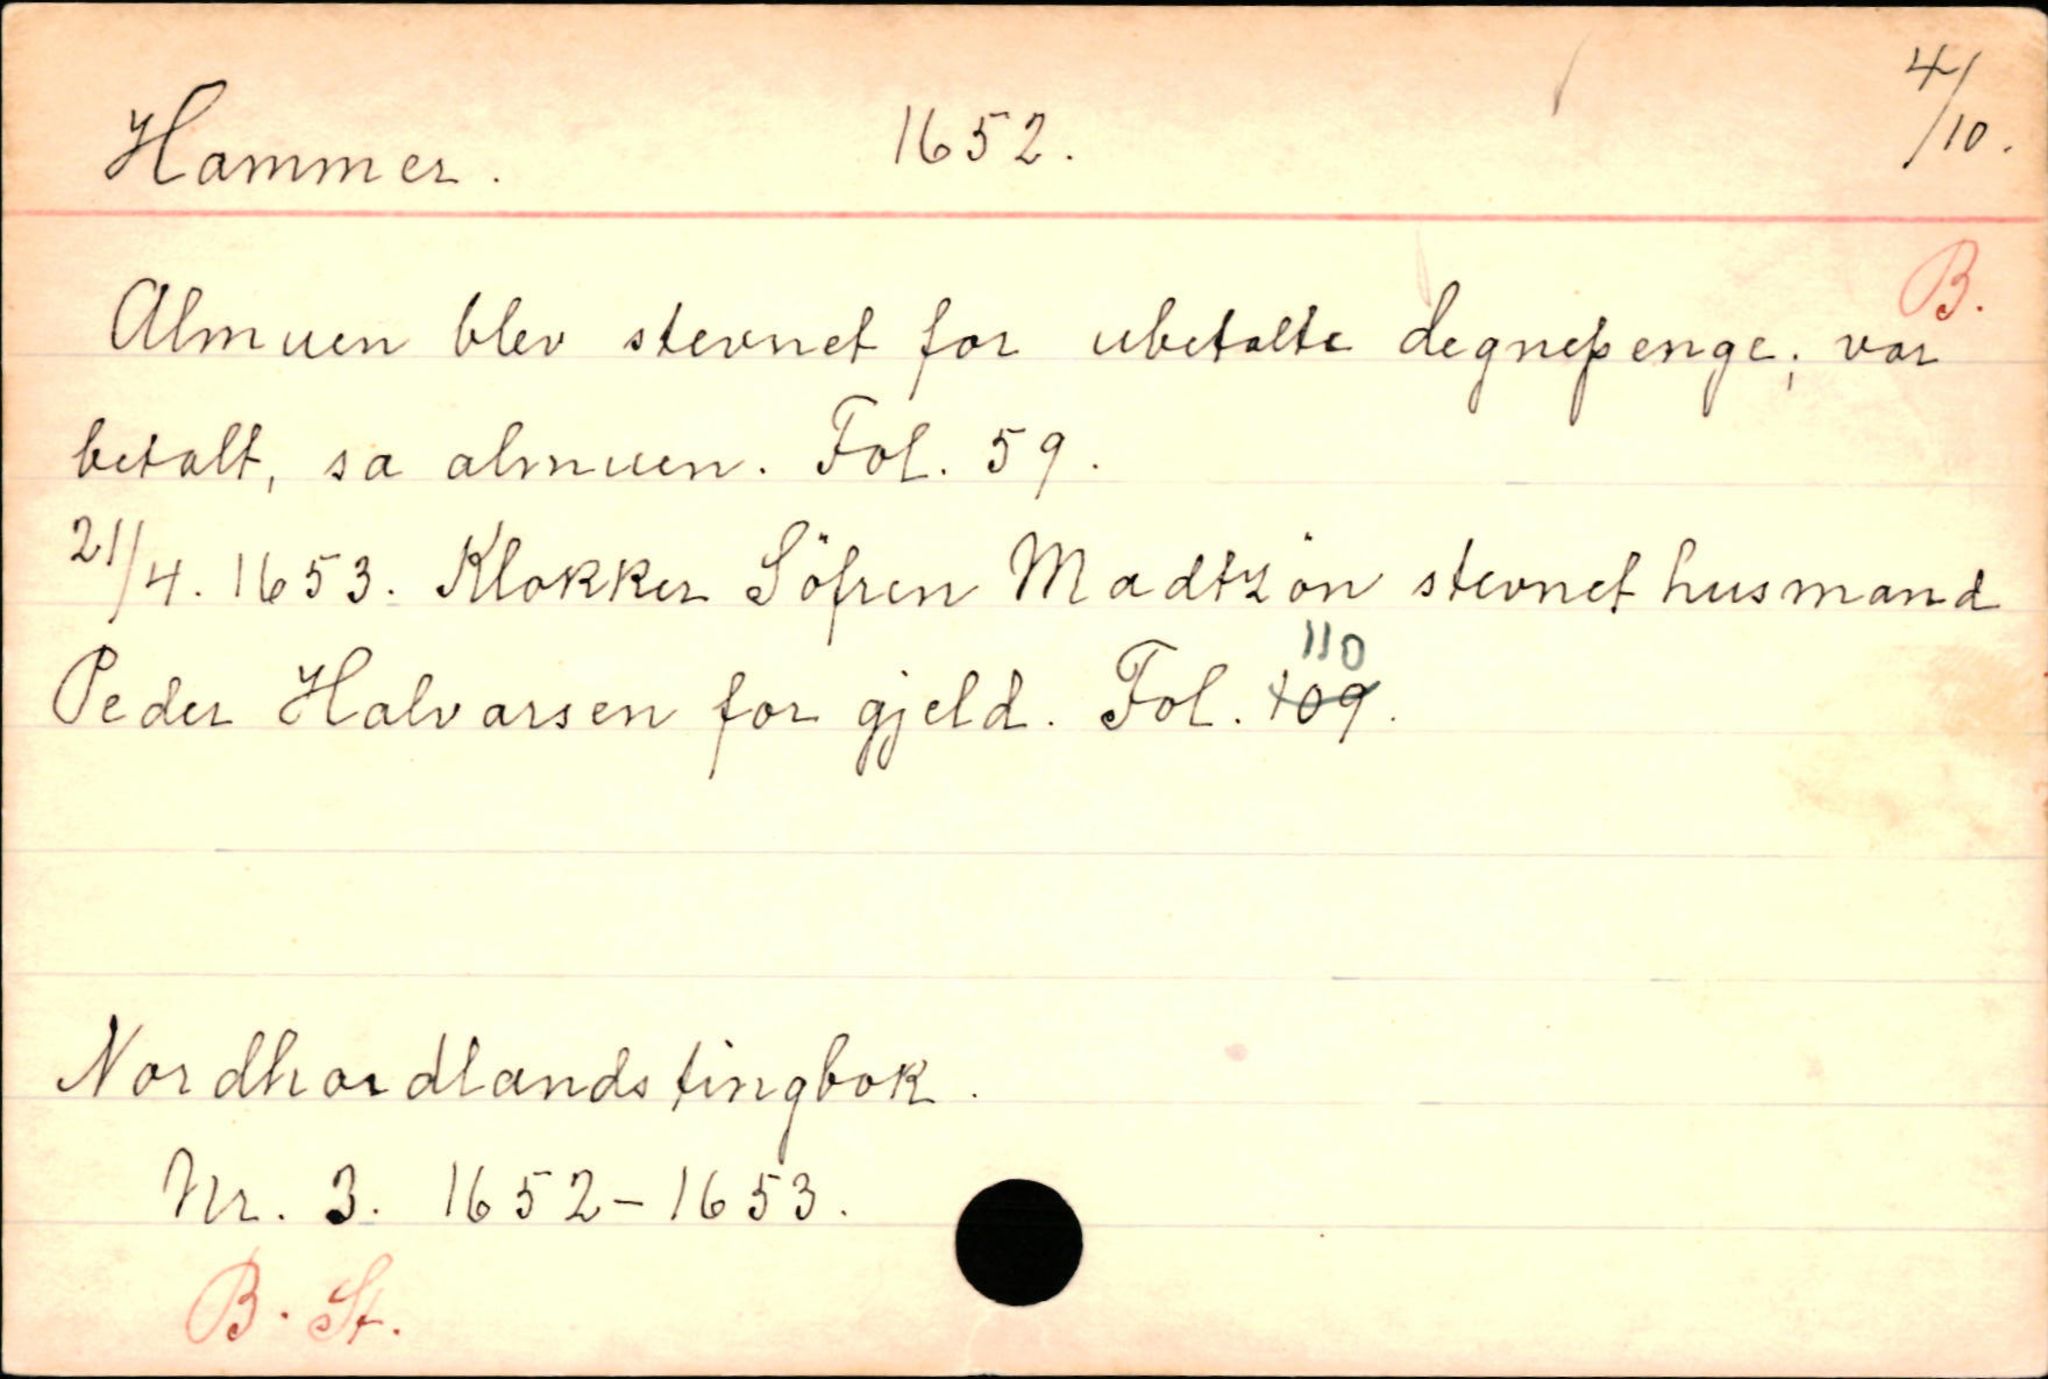 Hammer. 1652. 4/10.
B.
Almuen blev stevnet for ubetalte degnepenge; var
betalt, sa almuen. Fol. 59.
21/4. 1653. Klokker Söfren Madtzön stevnet husmand
Peder Halvarsen for gjeld. Fol. 109. 110
Nordhordlands tingbok.
Nr. 3. 1652-1653.
B. St.